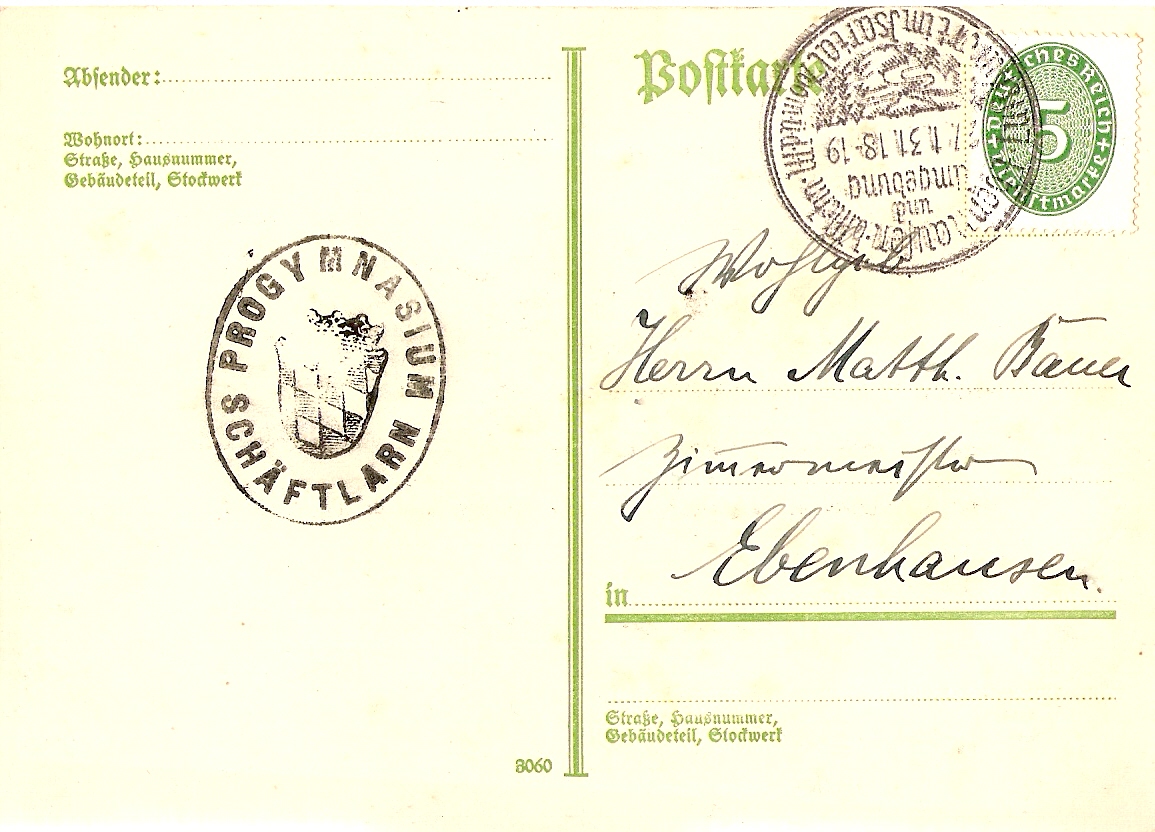 Absender:
Wohnort:
Straße, Hausnummer,
Gebäudeteil, Stockwerk
PROGYMNASIUM
SCHÄFTLARN
3060
Postkarte
Deutsches Reich
5
und
Umgebung
1.31.18-19
Wohlgeb
Herrn Matth. Bauer
Zimermeister
in Ebenhausen.
Straße, Hausnummer,
Gebäudeteil, Stockwerk